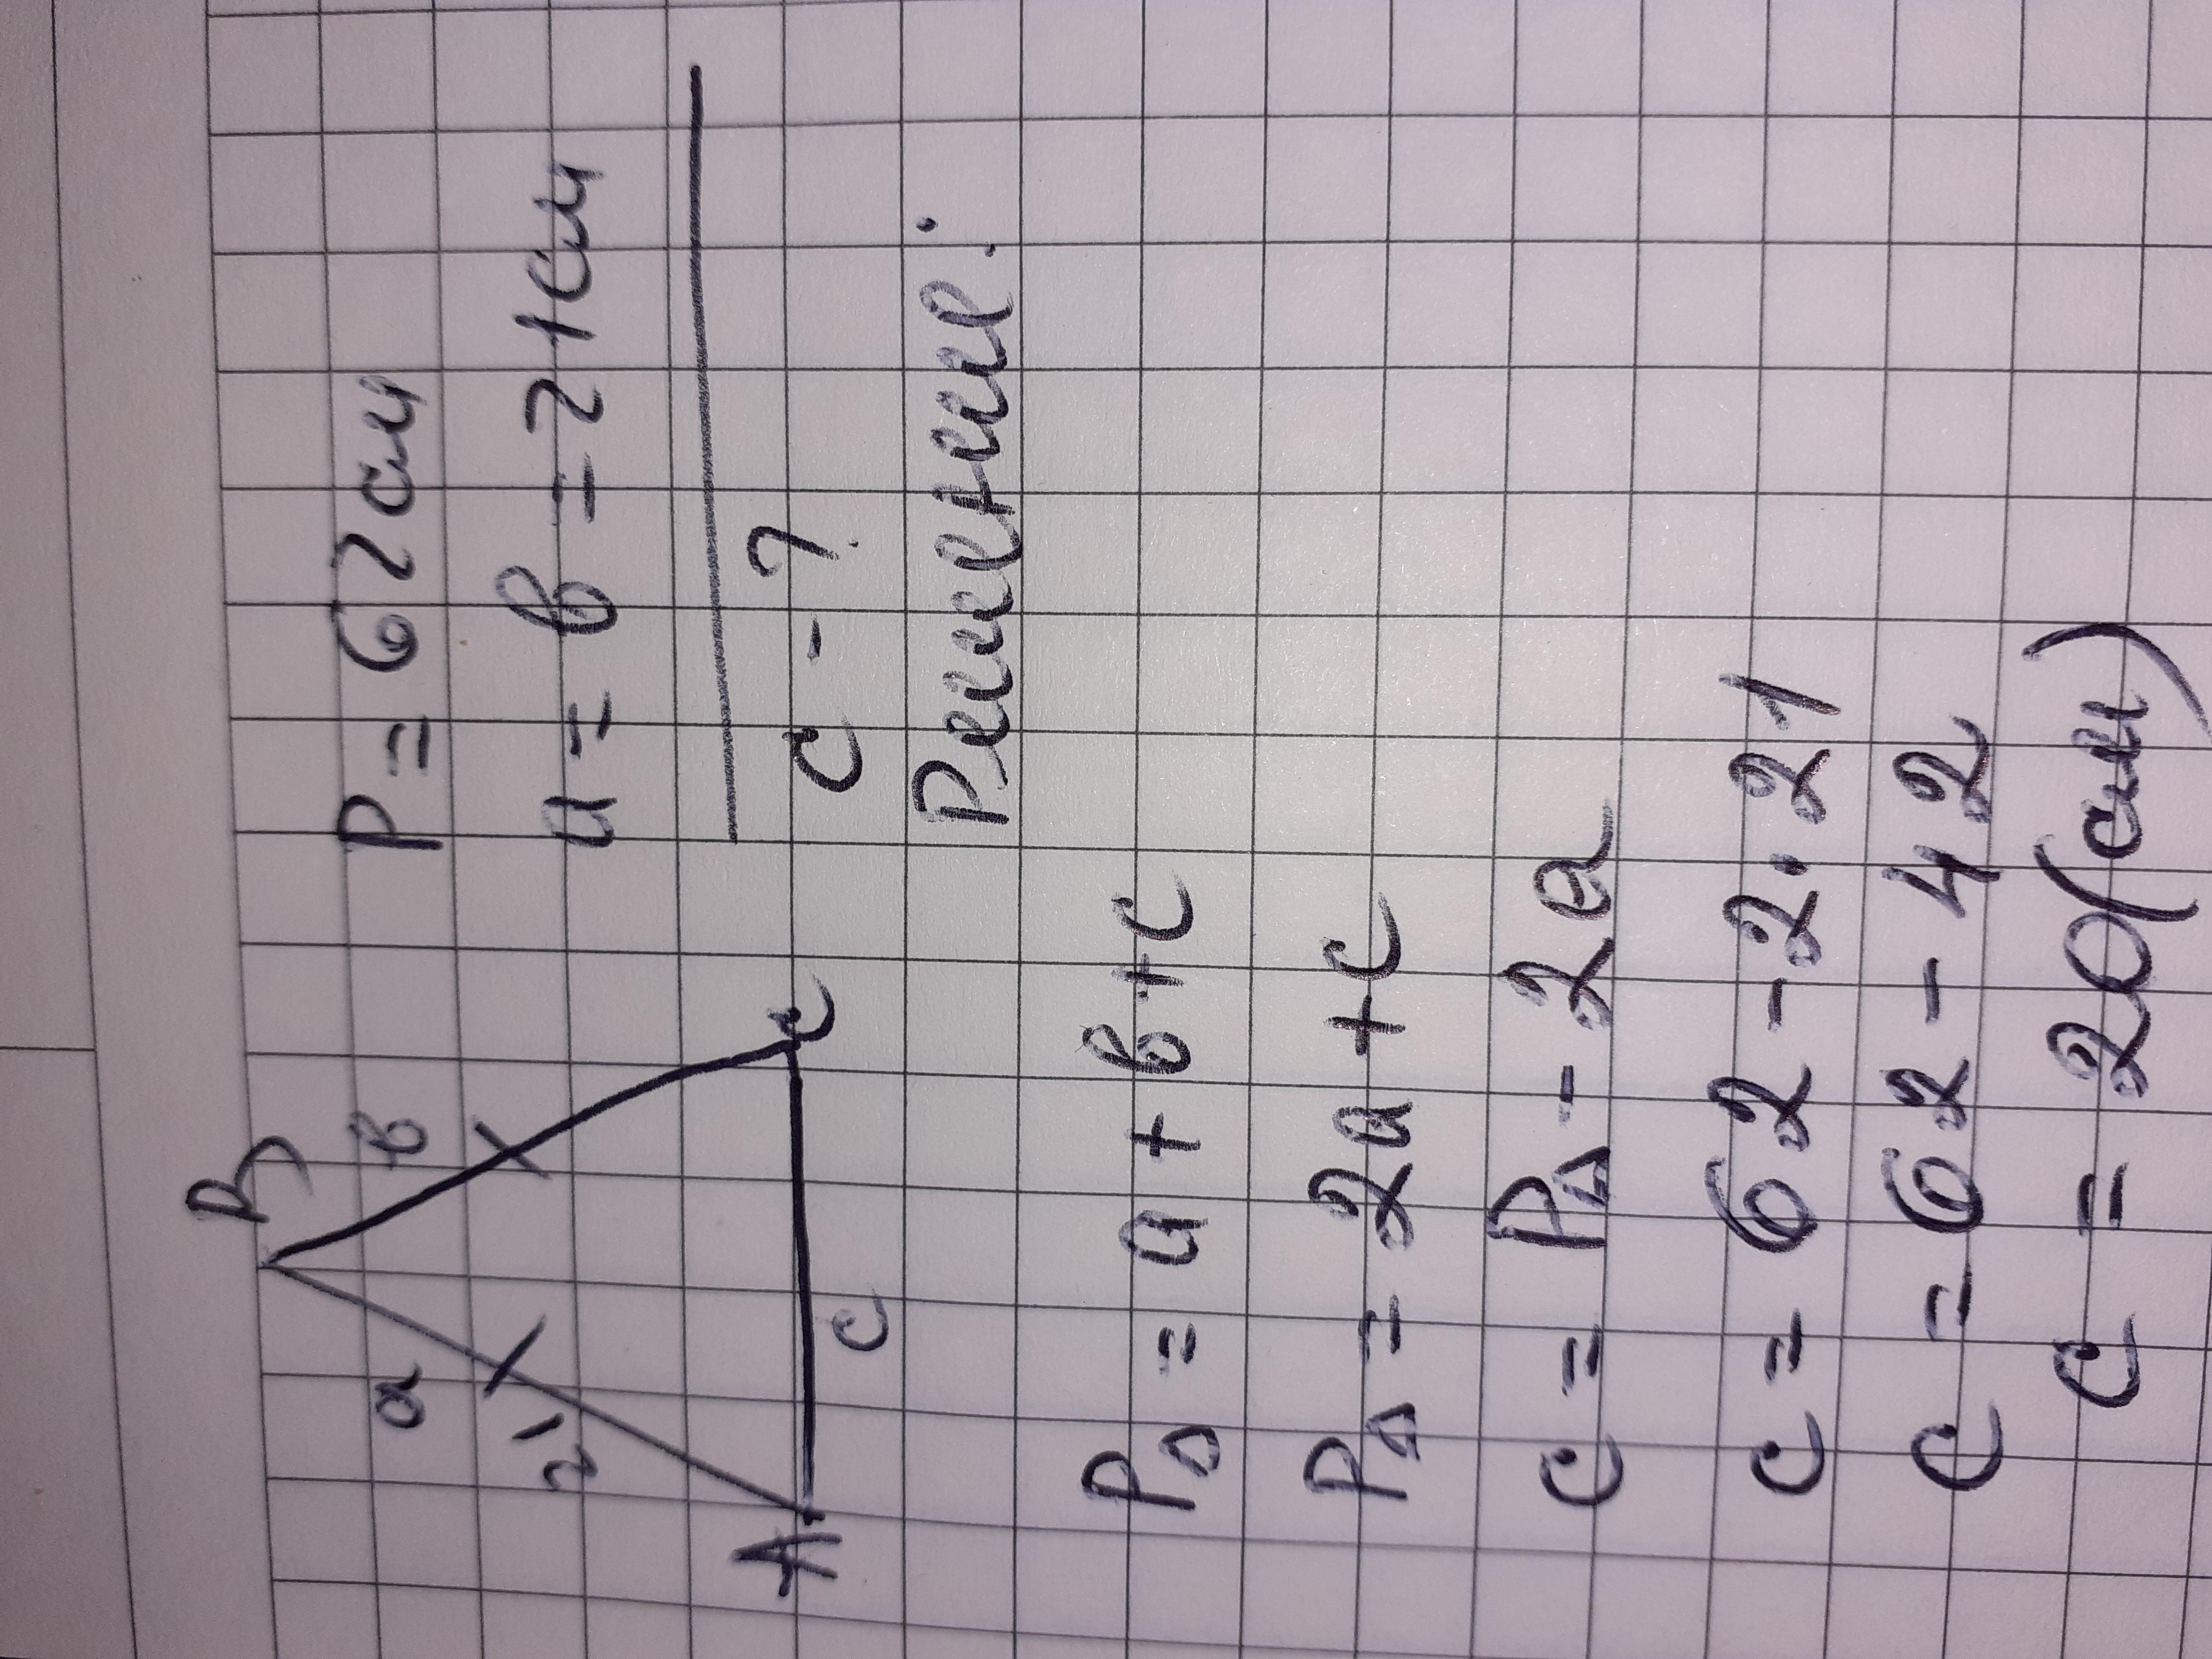 B
a
в
21
A
C
c
P = 62 см
a = в = 21 см
c - ?
Решение:
P∆ = a + в + c
P∆ = 2a + c
c = P∆ - 2a
c = 62 - 2 · 21
c = 62 - 42
c = 20 (см)